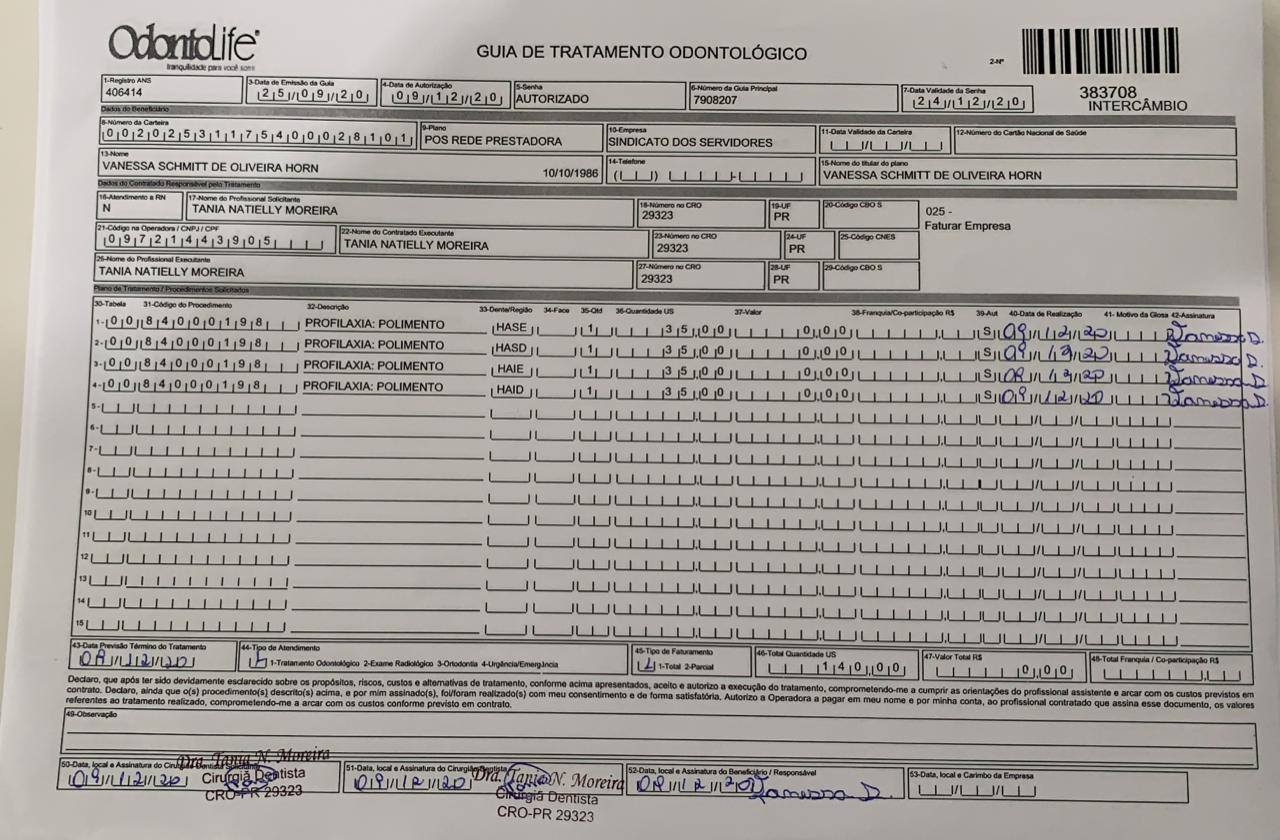 OdontoLife®
tranquilidade para você sorrir
GUIA DE TRATAMENTO ODONTOLÓGICO
2-Nº
383708
INTERCÂMBIO
1-Registro ANS 3-Data de Emissão da Guia 4-Data de Autorização 5-Senha 6-Número da Guia Principal 7-Data Validade da Senha
406414 25/09/20 09/12/20 AUTORIZADO 7908207 24/12/20
Dados do Beneficiário
8-Número da Carteira 9-Plano 10-Empresa 11-Data Validade da Carteira 12-Número do Cartão Nacional de Saúde
00202531175400028101 POS REDE PRESTADORA SINDICATO DOS SERVIDORES
13-Nome 14-Telefone 15-Nome do titular do plano
VANESSA SCHMITT DE OLIVEIRA HORN 10/10/1986 VANESSA SCHMITT DE OLIVEIRA HORN
Dados do Contratado Responsável pelo Tratamento
16-Atendimento a RN 17-Nome do Profissional Solicitante 18-Número no CRO 19-UF 20-Código CBO S
N TANIA NATIELLY MOREIRA 29323 PR
025 -
Faturar Empresa
21-Código na Operadora / CNPJ / CPF 22-Nome do Contratado Executante 23-Número no CRO 24-UF 25-Código CNES
09721443905 TANIA NATIELLY MOREIRA 29323 PR
26-Nome do Profissional Executante 27-Número no CRO 28-UF 29-Código CBO S
TANIA NATIELLY MOREIRA 29323 PR
Plano de Tratamento / Procedimentos Solicitados
30-Tabela 31-Código do Procedimento 32-Descrição 33-Dente/Região 34-Face 35-Qtd 36-Quantidade US 37-Valor 38-Franquia/Co-participação R$ 39-Aut 40-Data de Realização 41- Motivo da Glosa 42-Assinatura
1- 00 84000198 PROFILAXIA: POLIMENTO HASE 1 35,00 0,00 S 09/12/20 Vanessa D.
2- 00 84000198 PROFILAXIA: POLIMENTO HASD 1 35,00 0,00 S 09/12/20 Vanessa D.
3- 00 84000198 PROFILAXIA: POLIMENTO HAIE 1 35,00 0,00 S 09/12/20 Vanessa D.
4- 00 84000198 PROFILAXIA: POLIMENTO HAID 1 35,00 0,00 S 09/12/20 Vanessa D.
5-
6-
7-
8-
9-
10
11
12
13
14
15
43-Data Previsão Término do Tratamento 44-Tipo de Atendimento 45-Tipo de Faturamento 46-Total Quantidade US 47-Valor Total R$ 48-Total Franquia / Co-participação R$
09/12/20 1 1-Tratamento Odontológico 2-Exame Radiológico 3-Ortodontia 4-Urgência/Emergência 1 1-Total 2-Parcial 140,00 0,00
Declaro, que após ter sido devidamente esclarecido sobre os propósitos, riscos, custos e alternativas de tratamento, conforme acima apresentados, aceito e autorizo a execução do tratamento, comprometendo-me a cumprir as orientações do profissional assistente e arcar com os custos previstos em
contrato. Declaro, ainda que o(s) procedimento(s) descrito(s) acima, e por mim assinado(s), foi/foram realizado(s) com meu consentimento e de forma satisfatória. Autorizo a Operadora a pagar em meu nome e por minha conta, ao profissional contratado que assina esse documento, os valores
referentes ao tratamento realizado, comprometendo-me a arcar com os custos conforme previsto em contrato.
49-Observação
50-Data, local e Assinatura do Cirurgião Dentista Solicitante 51-Data, local e Assinatura do Cirurgião Dentista 52-Data, local e Assinatura do Beneficiário / Responsável 53-Data, local e Carimbo da Empresa
09/12/20 09/12/20 09/12/20 Vanessa D.
Dra. Tania N. Moreira
Cirurgiã Dentista
CRO-PR 29323
Dra. Tania N. Moreira
Cirurgiã Dentista
CRO-PR 29323